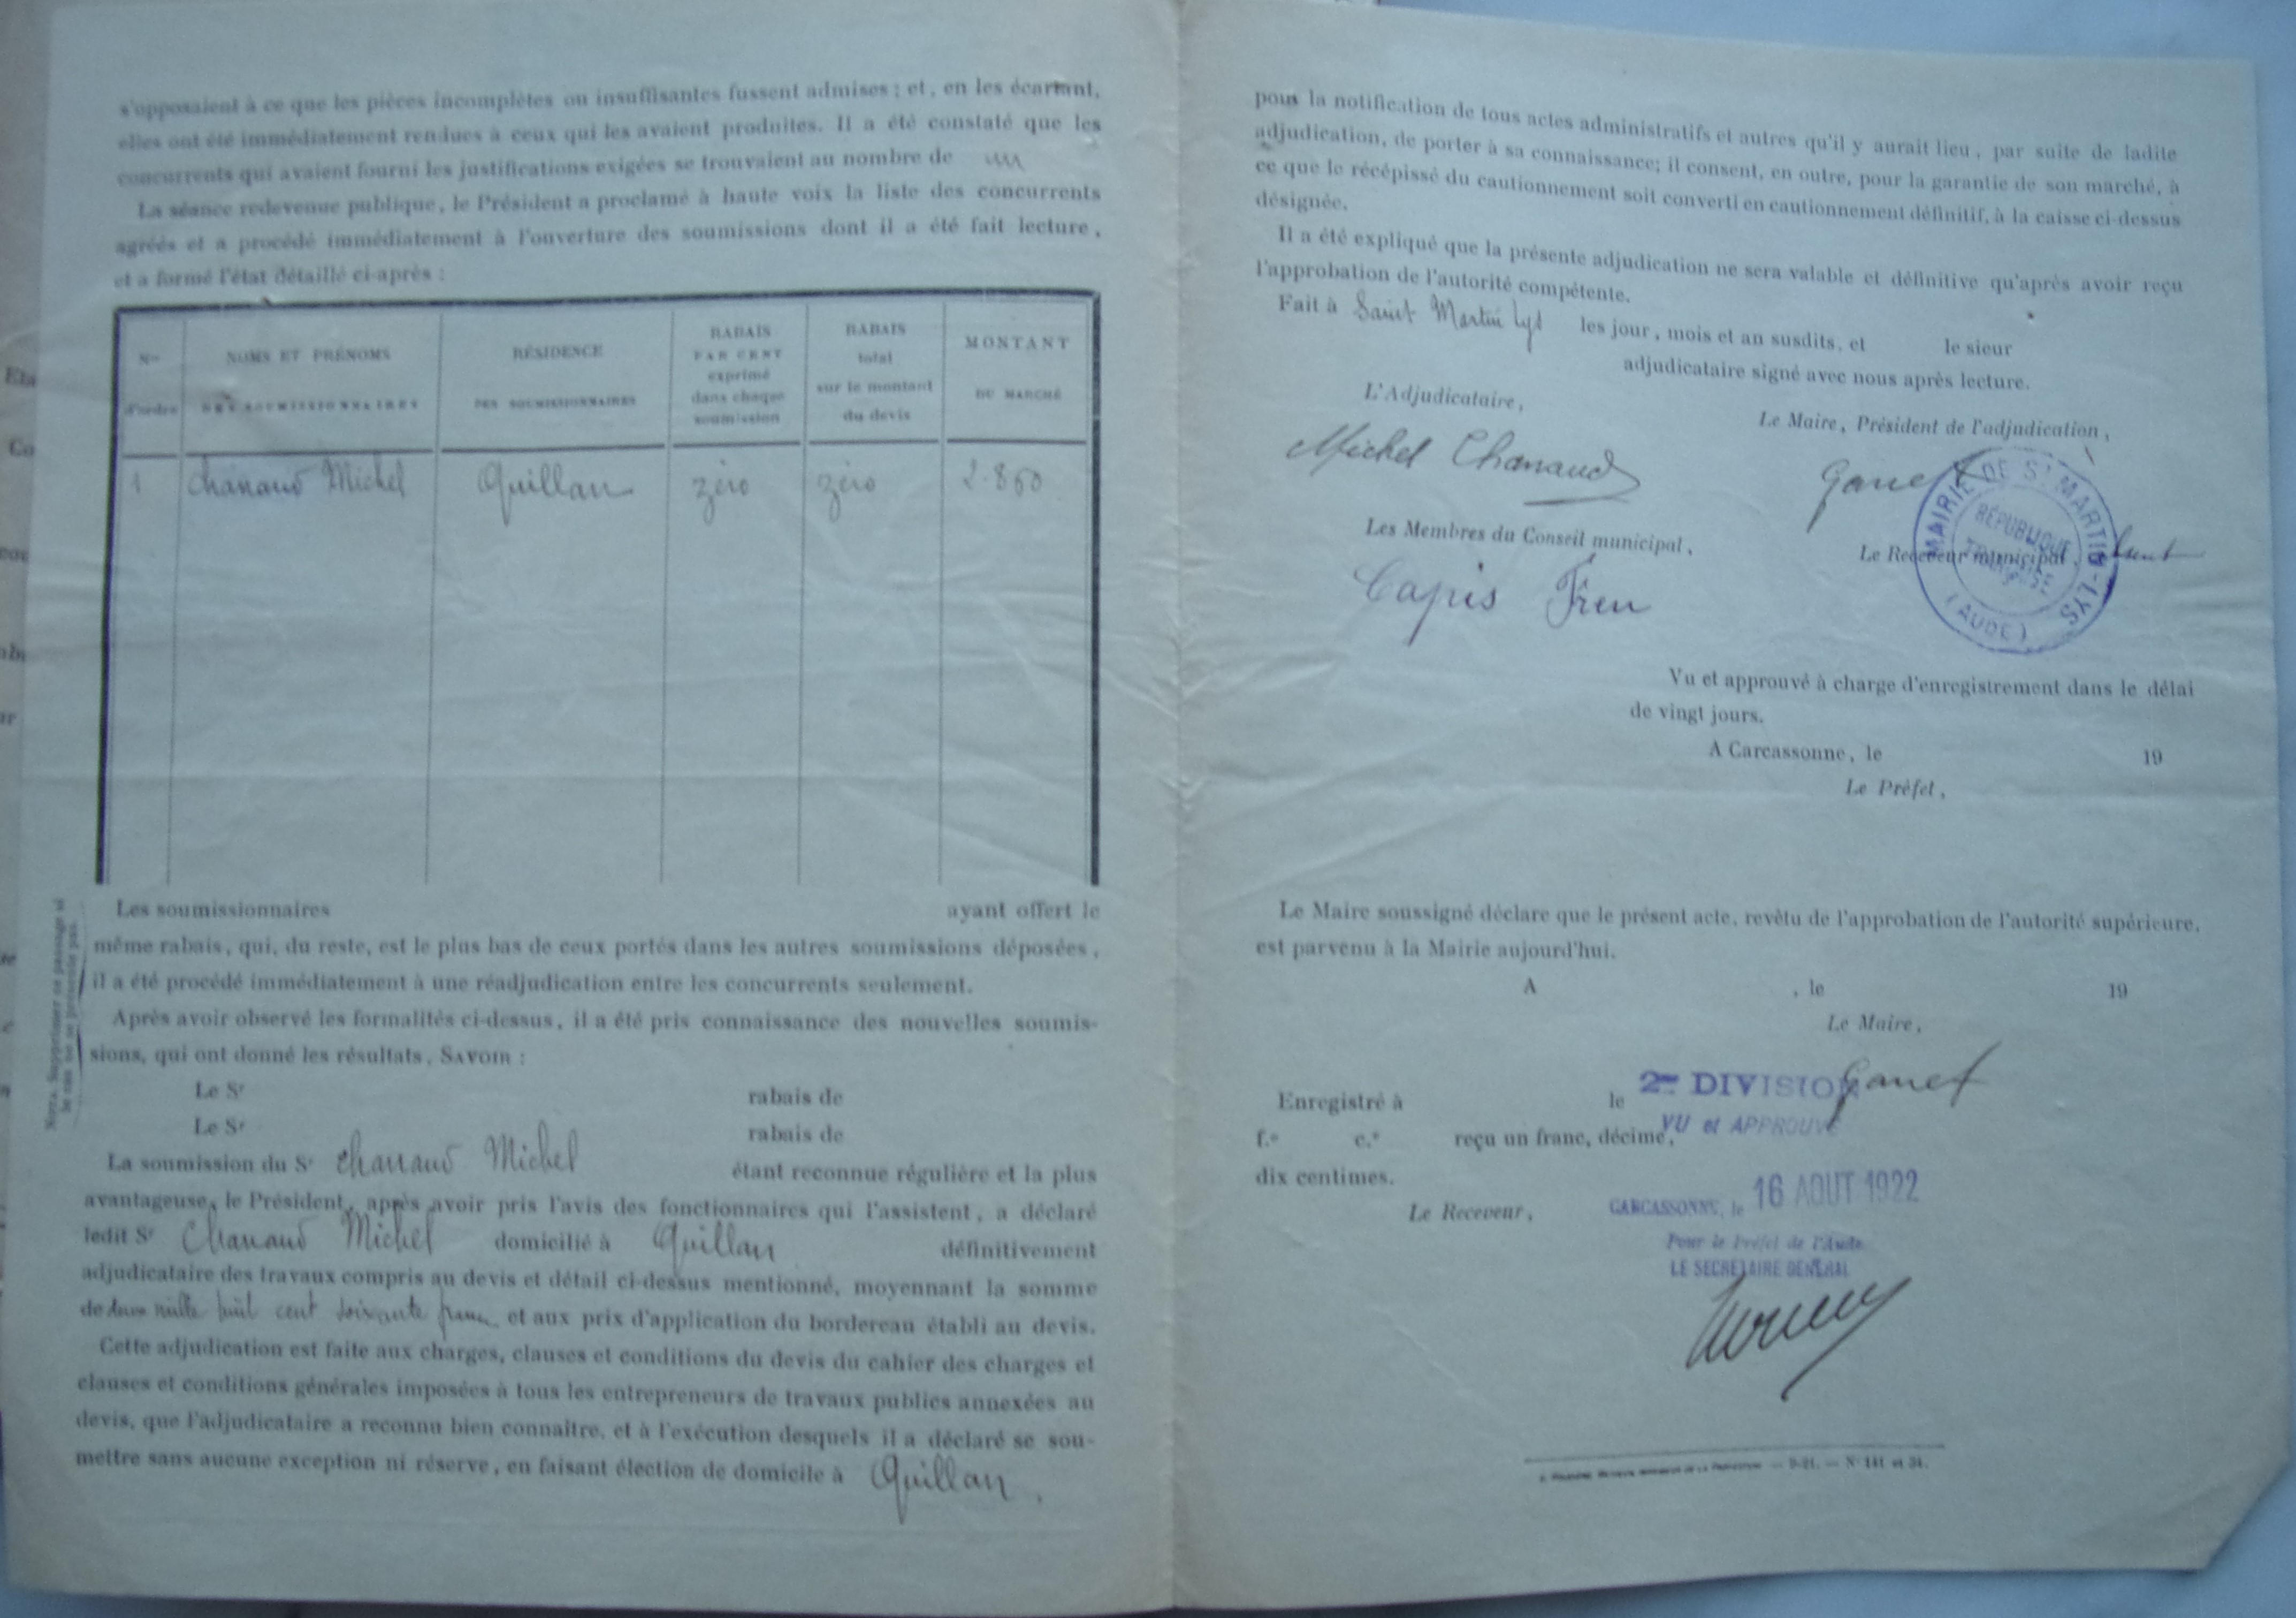 s'opposaient à ce que les pièces incomplètes ou insuffisantes fussent admises ; et, en les écartant,
elles ont été immédiatement rendues à ceux qui les avaient produites. Il a été constaté que les
concurrents qui avaient fourni les justifications exigées se trouvaient au nombre de un
La séance redevenue publique, le Président a proclamé à haute voix la liste des concurrents
agréés et a procédé immédiatement à l'ouverture des soumissions dont il a été fait lecture,
et a formé l'état détaillé ci-après :
Nos d'ordre
NOMS ET PRÉNOMS DES SOUMISSIONNAIRES
RÉSIDENCE DES SOUMISSIONNAIRES
RABAIS PAR CENT exprimé dans chaque soumission
RABAIS total sur le montant du devis
MONTANT DU MARCHÉ
1 Chanaud Michel Quillan zéro zéro 2.860
Les soumissionnaires ayant offert le
même rabais, qui, du reste, est le plus bas de ceux portés dans les autres soumissions déposées,
il a été procédé immédiatement à une réadjudication entre les concurrents seulement.
Après avoir observé les formalités ci-dessus, il a été pris connaissance des nouvelles soumis-
sions, qui ont donné les résultats, SAVOIR :
Nota. Supprimer ce passage si
le cas ne se présente pas.
Le Sr rabais de
Le Sr rabais de
La soumission du Sr Chanaud Michel étant reconnue régulière et la plus
avantageuse, le Président, après avoir pris l'avis des fonctionnaires qui l'assistent, a déclaré
ledit Sr Chanaud Michel domicilié à Quillan définitivement
adjudicataire des travaux compris au devis et détail ci-dessus mentionné, moyennant la somme
de deux mille huit cent soixante francs et aux prix d'application du bordereau établi au devis.
Cette adjudication est faite aux charges, clauses et conditions du devis du cahier des charges et
clauses et conditions générales imposées à tous les entrepreneurs de travaux publics annexées au
devis, que l'adjudicataire a reconnu bien connaître, et à l'exécution desquels il a déclaré se sou-
mettre sans aucune exception ni réserve, en faisant élection de domicile à Quillan,
pour la notification de tous actes administratifs et autres qu'il y aurait lieu, par suite de ladite
adjudication, de porter à sa connaissance; il consent, en outre, pour la garantie de son marché, à
ce que le récépissé du cautionnement soit converti en cautionnement définitif, à la caisse ci-dessus
désignée.
Il a été expliqué que la présente adjudication ne sera valable et définitive qu'après avoir reçu
l'approbation de l'autorité compétente.
Fait à Saint Martin Lys les jour, mois et an susdits, et le sieur
adjudicataire signé avec nous après lecture.
L'Adjudicataire,
Le Maire, Président de l'adjudication,
Michel Chanaud
Ganet
MAIRIE DE ST MARTIN-LYS
RÉPUBLIQUE
FRANÇAISE
(AUDE)
Les Membres du Conseil municipal,
Le Receveur municipal,
Capis
Vu et approuvé à charge d'enregistrement dans le délai
de vingt jours.
A Carcassonne, le 19
Le Préfet,
Le Maire soussigné déclare que le présent acte, revêtu de l'approbation de l'autorité supérieure,
est parvenu à la Mairie aujourd'hui.
A , le 19
Le Maire,
2me DIVISION
Ganet
Enregistré à le
VU et APPROUVÉ
f.o c.e reçu un franc, décime,
dix centimes.
CARCASSONNE, le 16 AOUT 1922
Le Receveur,
Pour le Préfet de l'Aude
LE SECRÉTAIRE GÉNÉRAL
— 9-21. — N° 141 et 34.